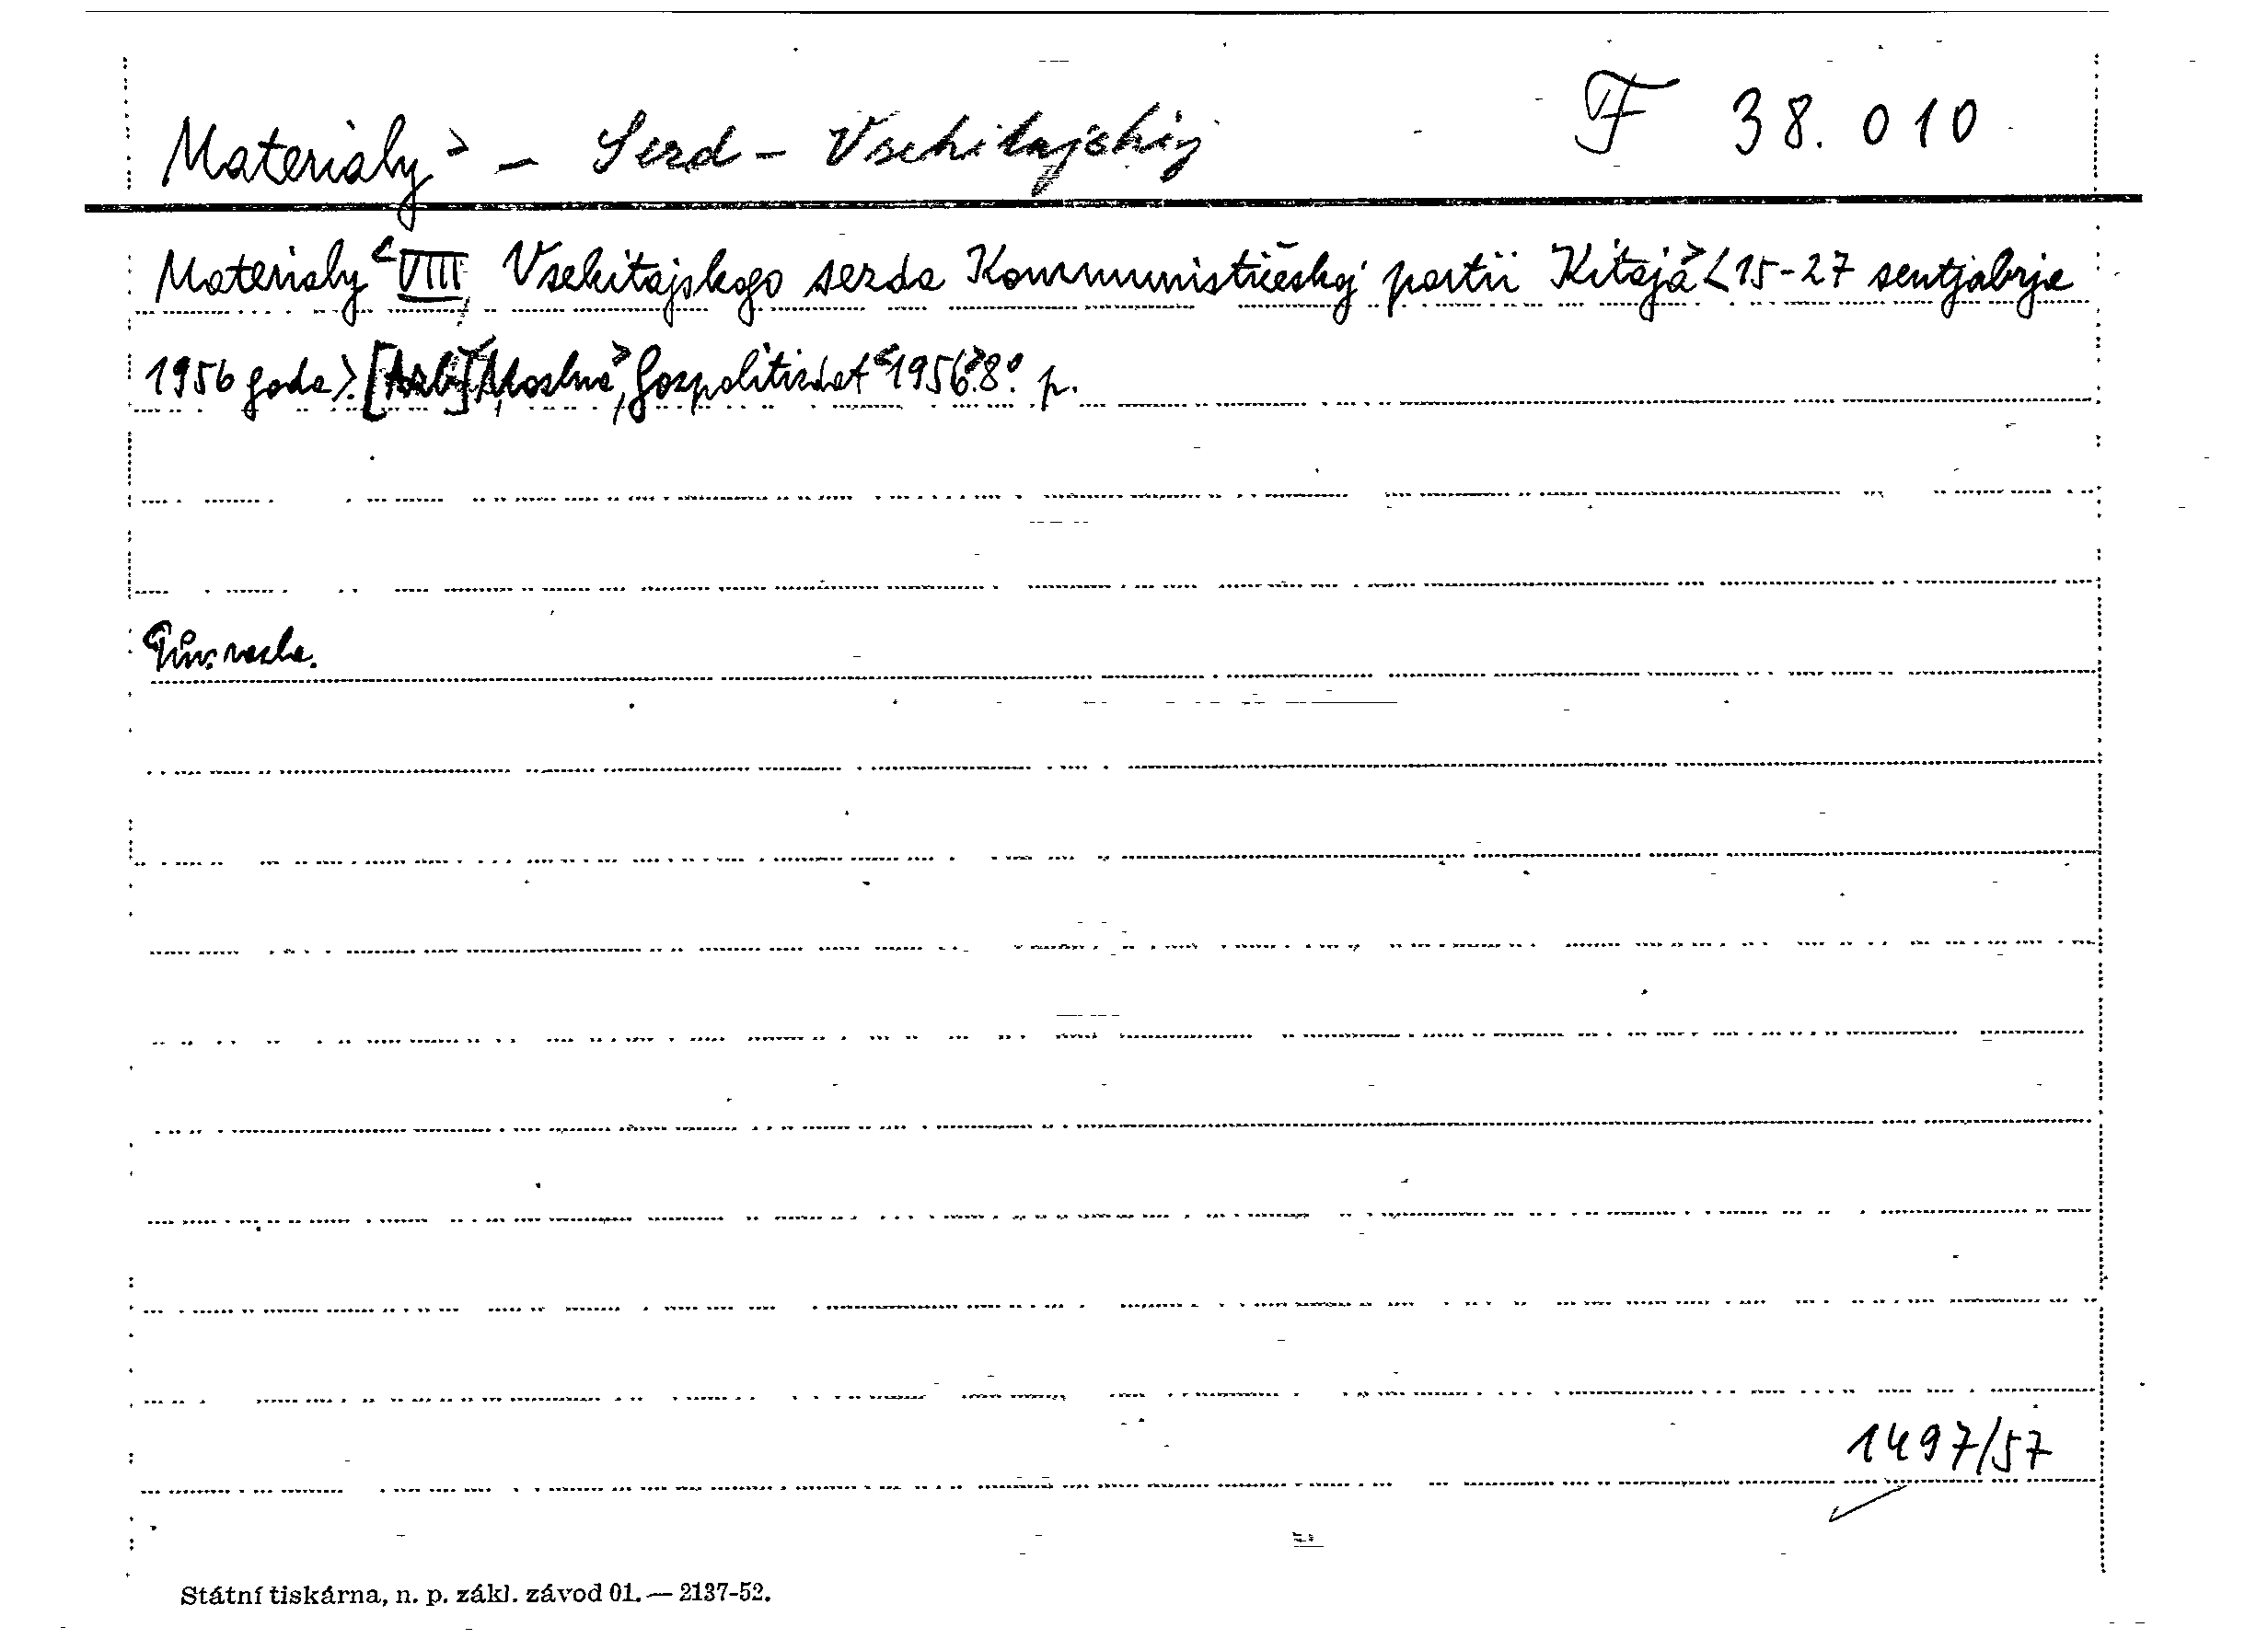 Materialy> – Sezd – Vsekitajskij F 38.010
Materialy <VIII Vsekitajskogo sezda Kommunističeskoj partii Kitaja> <15-27 sentjabrja
1956 goda>. Moskva>, Gospolitizdat <1956>. 8°. p.
Pův. vazba.
1497/57
Státní tiskárna, n. p. zákl. závod 01. — 2137-52.